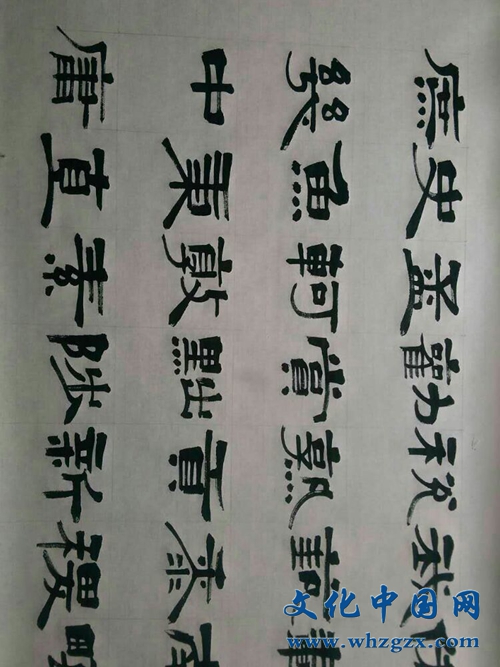 庶幾中庸
史魚秉直
孟軻敦素
勸賞黜陟
稅熟貢新
我藝黍稷
載南畝
文化中国网
www.whzgzx.com